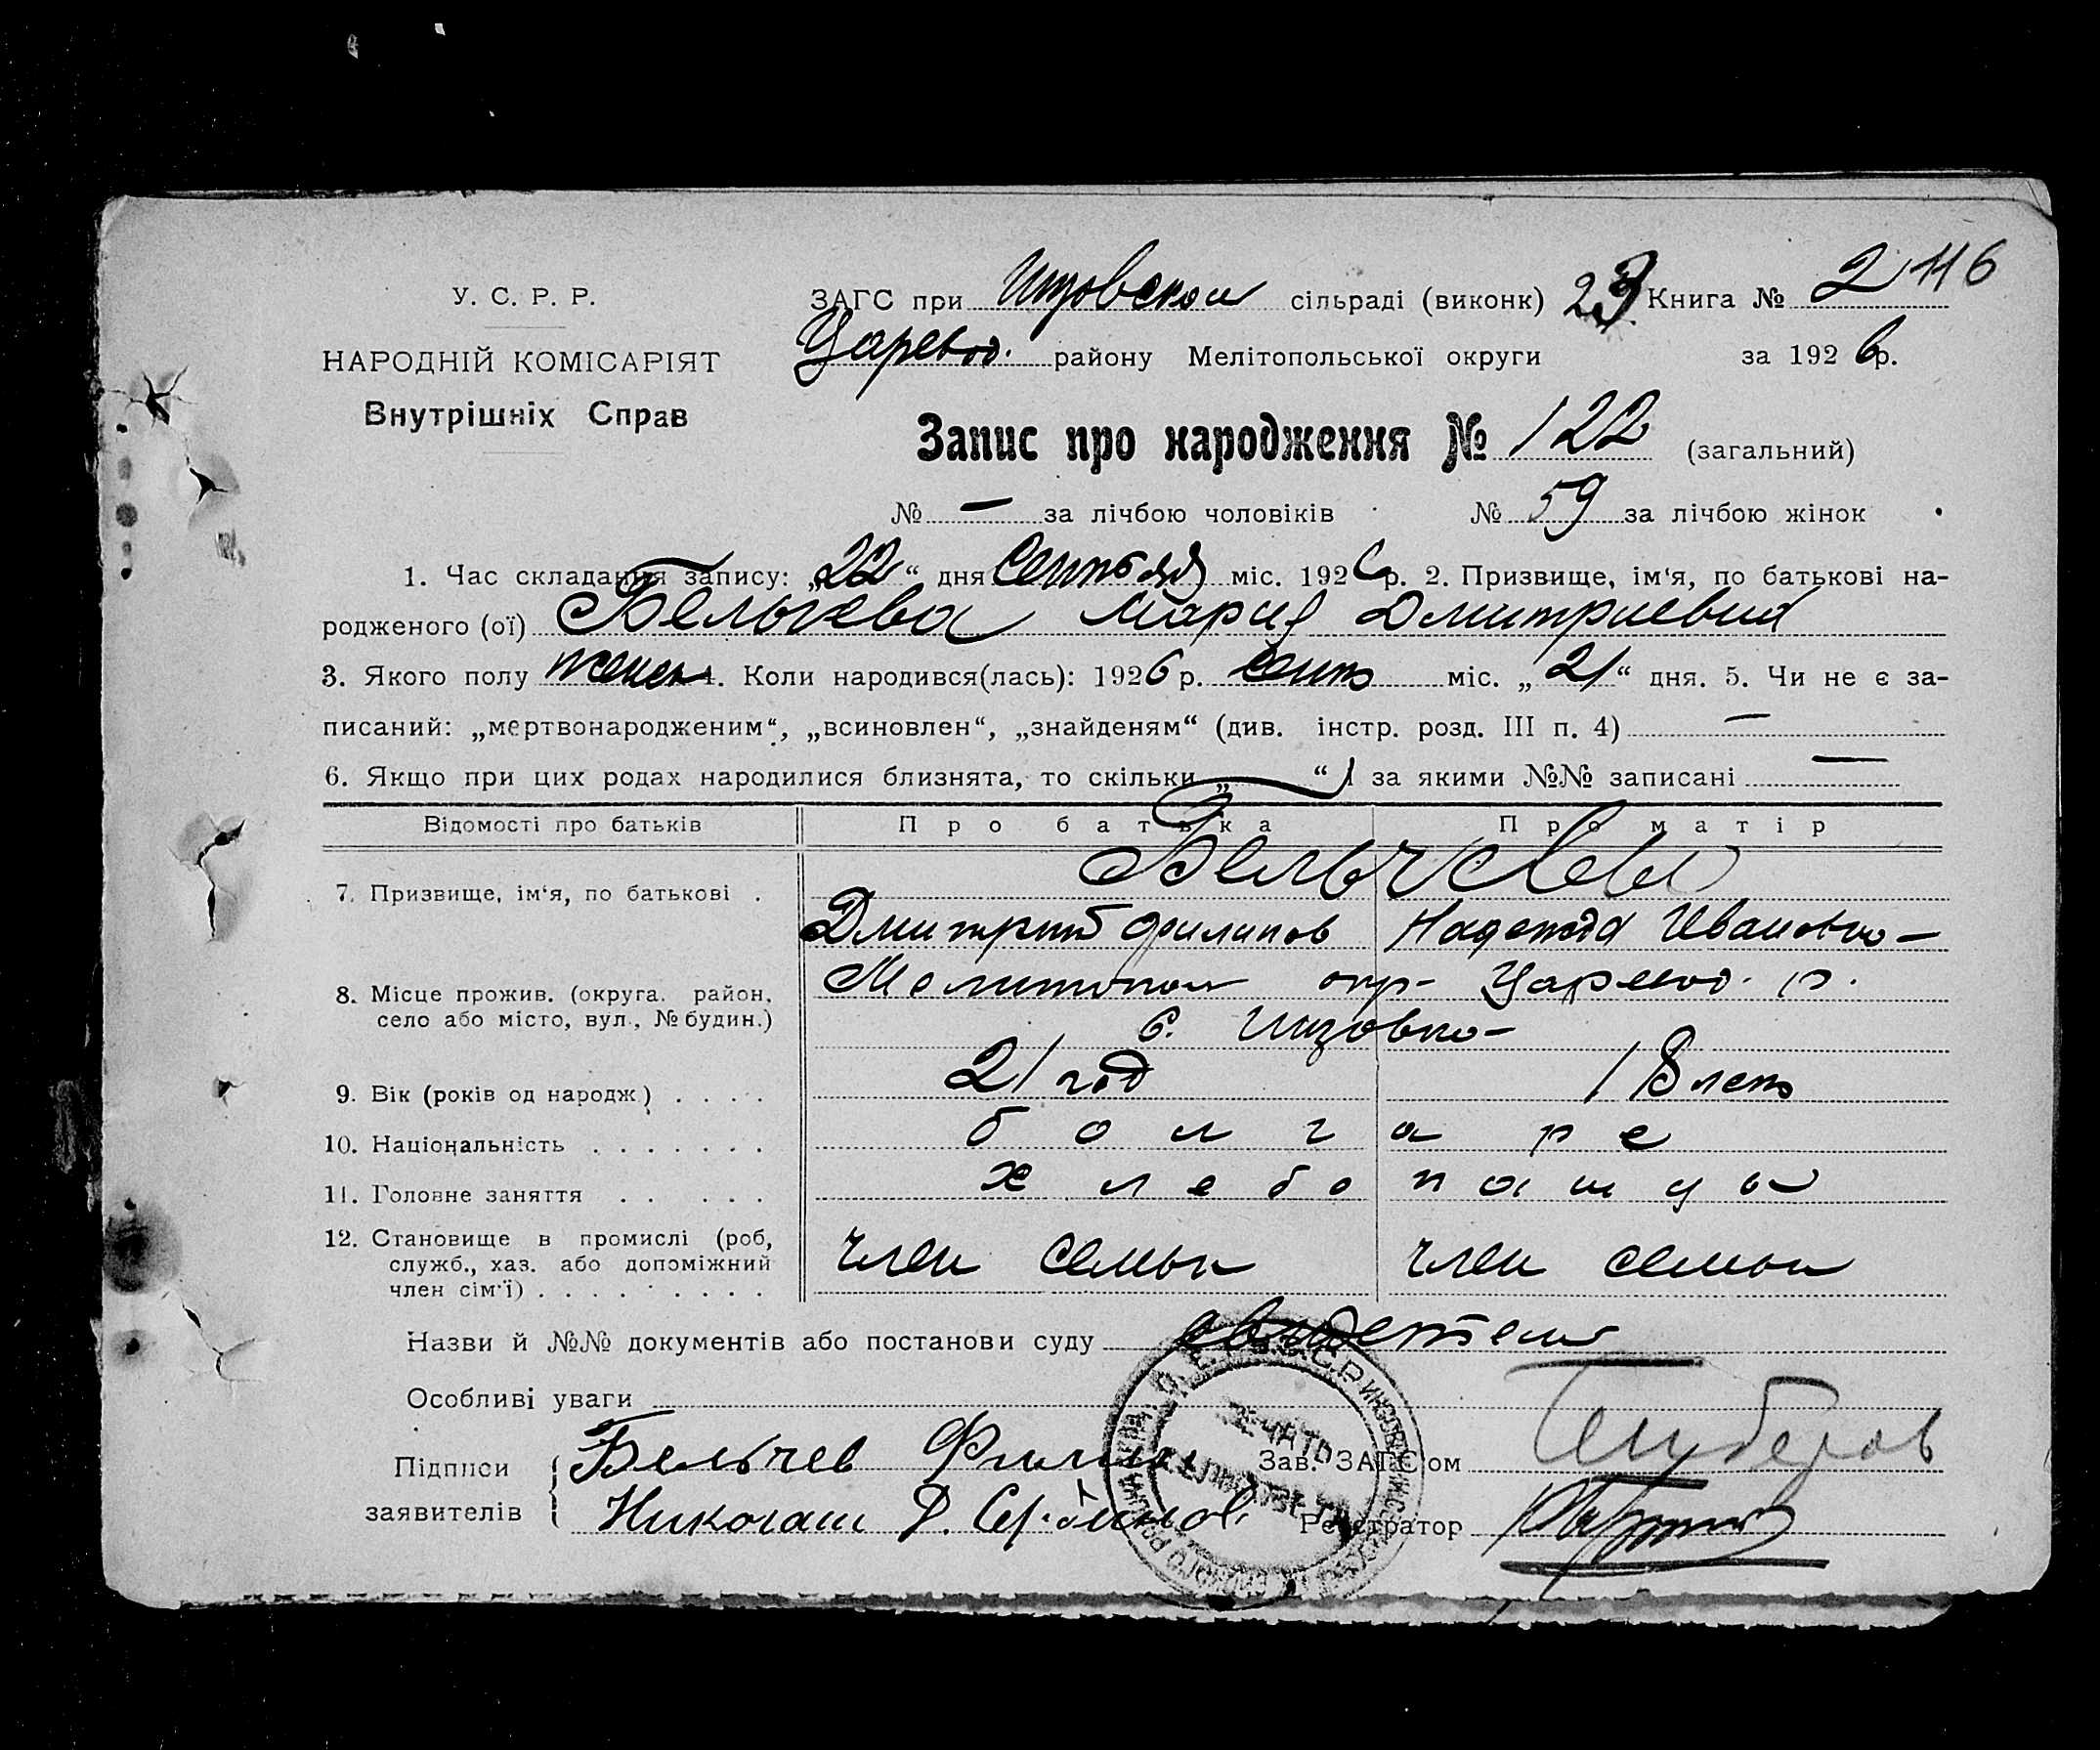 2 116
У. С. Р. Р.
ЗАГС при Инзовском сільраді (виконк) 23 Книга №
Царевод. району Мелітопольської округи за 1926 р.
НАРОДНІЙ КОМІСАРІЯТ
Внутрішніх Справ
Запис про народження № 122 (загальний)
№ — за лічбою чоловіків № 59 за лічбою жінок
1. Час складання запису: „22“ дня Сентября міс. 1926 р. 2. Призвище, ім‘я, по батькові на-
родженого (ої) Бельчева Мария Дмитриевна
3. Якого полу женск 4. Коли народився(лась): 1926 р. сент міс. „21“ дня. 5. Чи не є за-
писаний: „мертвонародженим“, „всиновлен“, „знайденям“ (див. інстр. розд. III п. 4) —
6. Якщо при цих родах народилися близнята, то скільки „—“ і за якими №№ записані —
Відомості про батьків Про батька Про матір
Бельчевы
7. Призвище, ім‘я, по батькові .
Дмитрий Филипов Надежда Ивановна
8. Місце прожив. (округа, район, Мелитопол окр- Царевод. р.
село або місто, вул., № будин.)
с. Инзовка
9. Вік (років од народж) . . . . 21 год 18 лет
10. Національність . . . . . . . болгаре
11. Головне заняття . . . . . . хлебопашцы
12. Становище в промислі (роб,
служб., хаз. або допоміжний член семьи член семьи
член сім‘ї) . . . . . . . . .
Назви й №№ документів або постанови суду свидетели
Особливі уваги
Підписи Бельчев Филип Зав. ЗАГС‘ом
заявителів Николаш Д. Регистратор